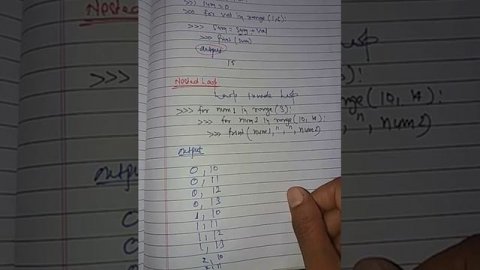 >>> sum = 0
>>> for val in range(1,6):
>>> sum = sum + val
>>> print(sum)
output
15
Nested Loop
Loop inside Loop
>>> for num1 in range(3):
>>> for num2 in range(10, 14):
>>> print(num1, ",", num2)
output
0, 10
0, 11
0, 12
0, 13
1, 10
1, 11
1, 12
1, 13
2, 10